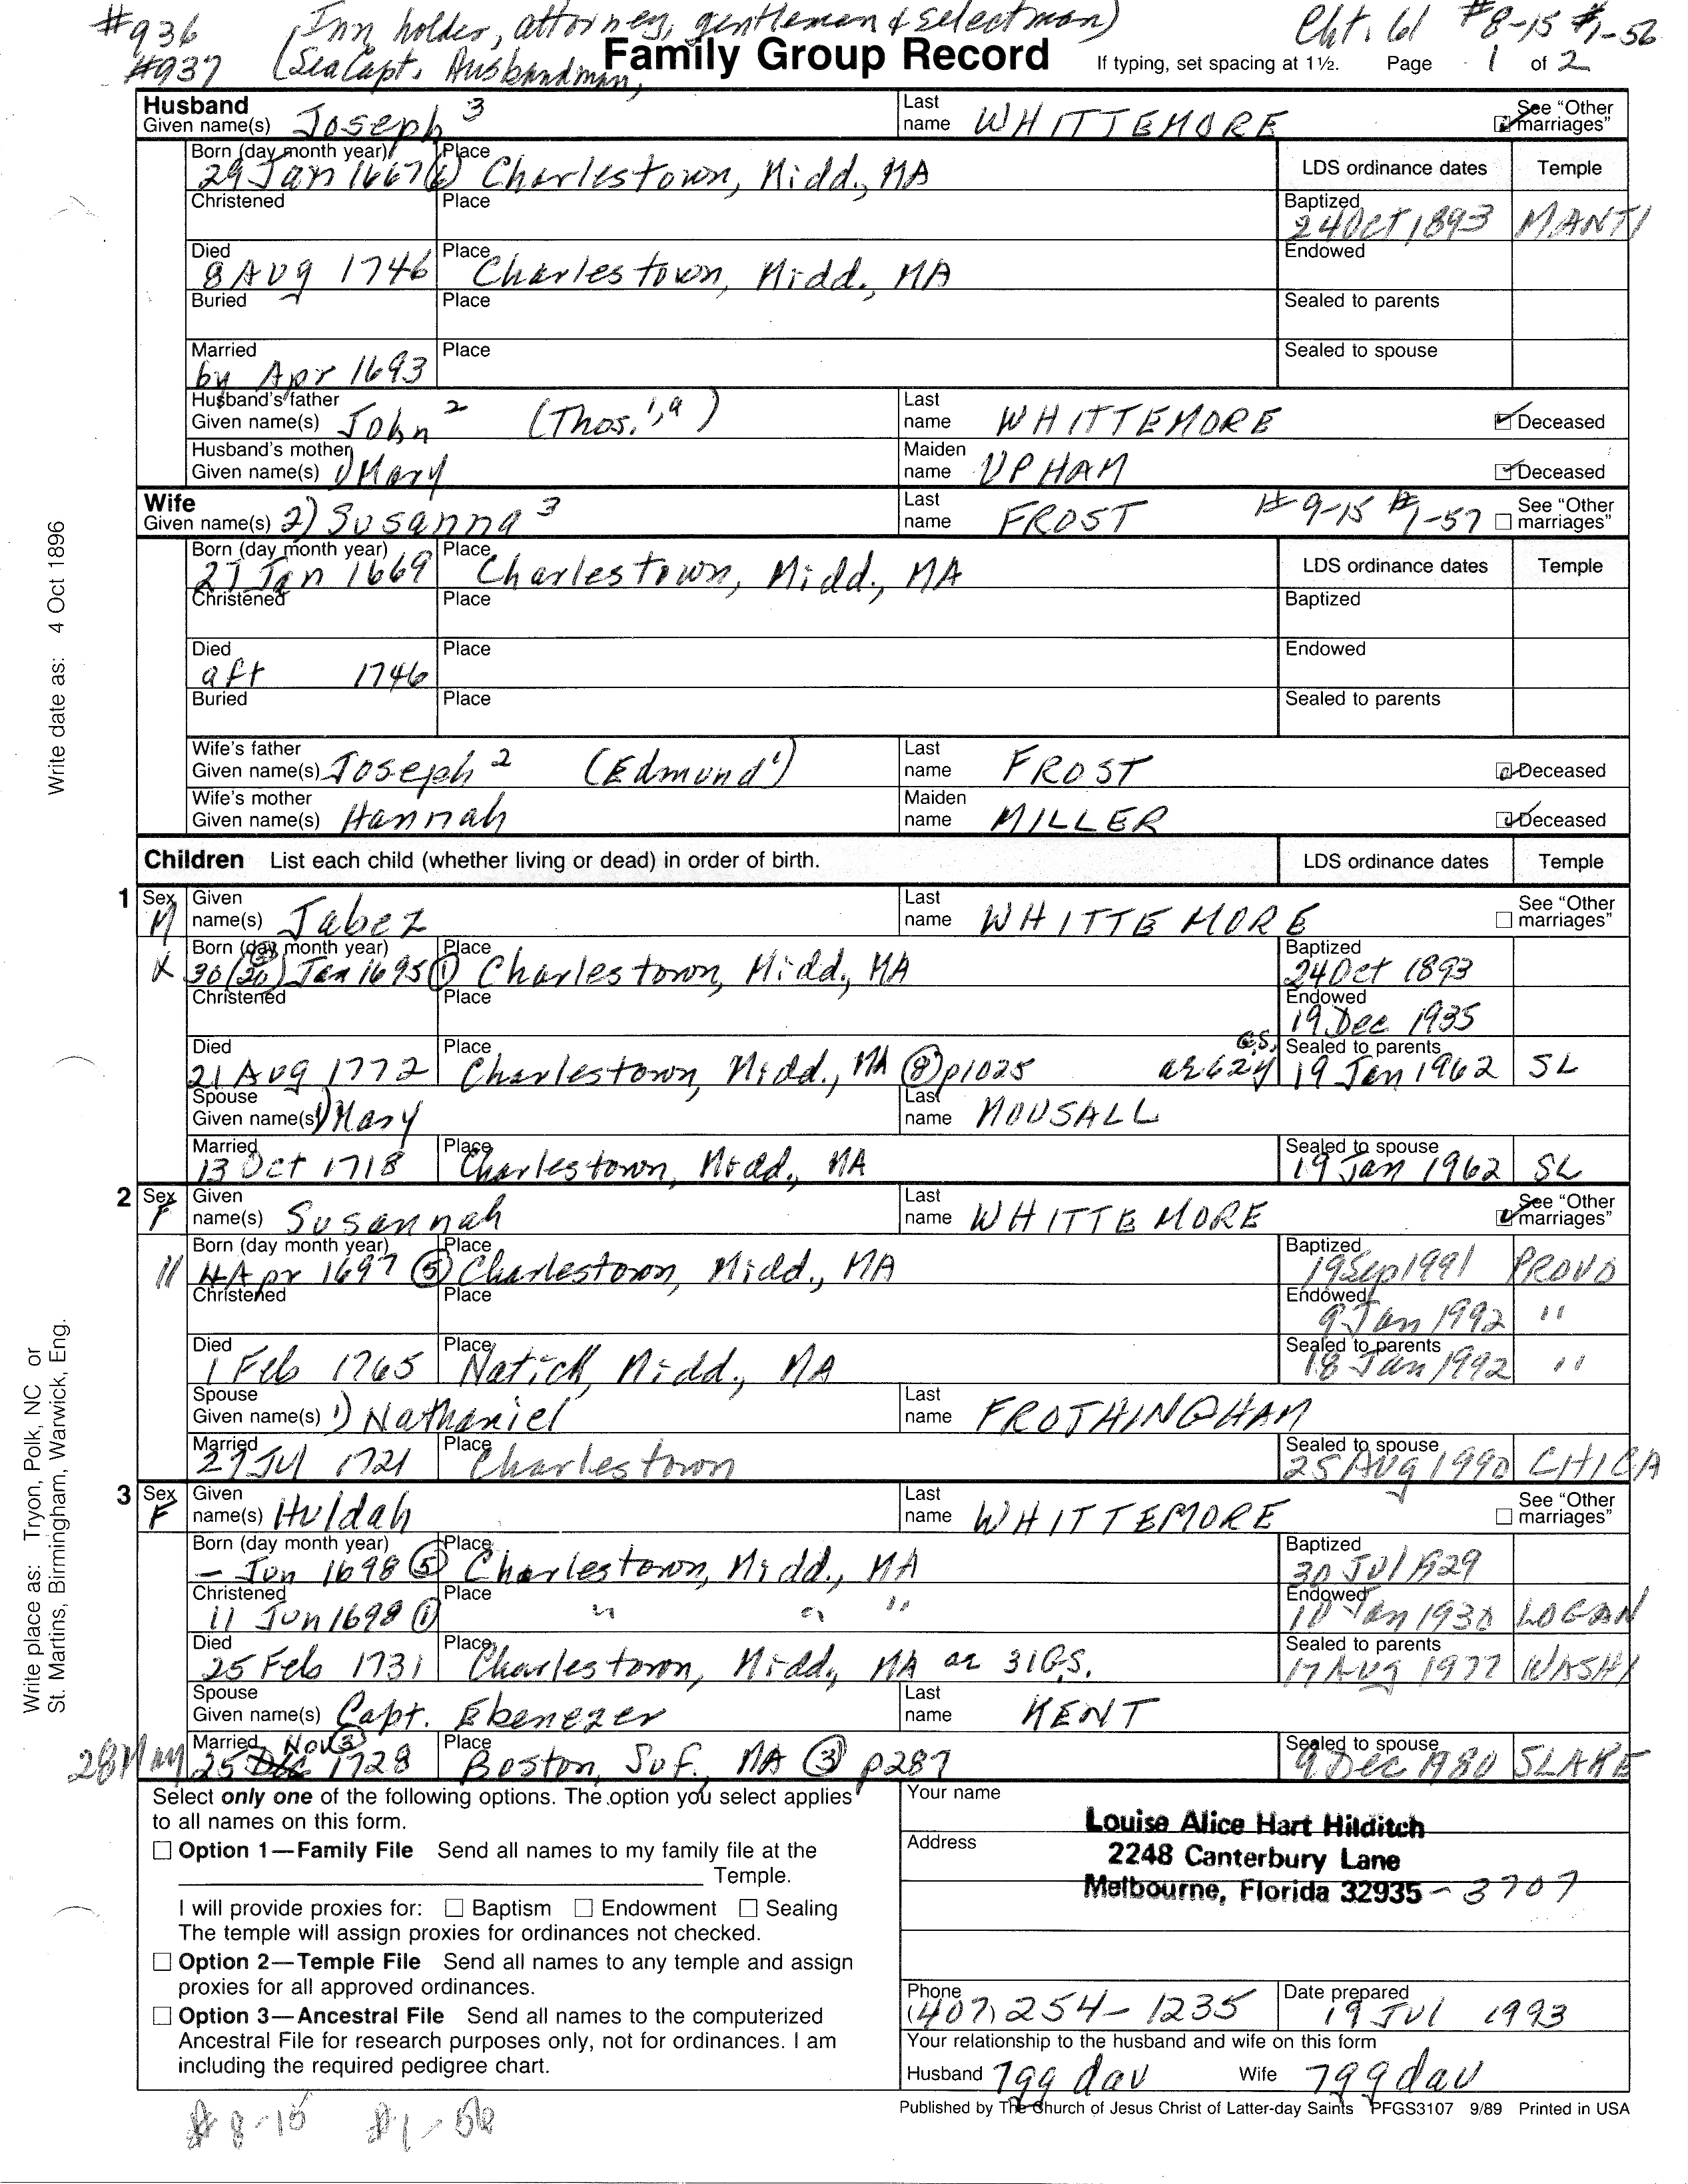 #936 (Inn holder, attorney, gentleman & selectman) Cht. 61 #8-15 #1-56
#937 (Sea Capt. Husbandman, Family Group Record If typing, set spacing at 1½. Page 1 of 2
Husband
Given name(s) Joseph 3 Last name WHITTEMORE See "Other marriages"
Born (day month year) Place LDS ordinance dates Temple
29 Jan 1667 Charlestown, Midd., MA
Christened Place Baptized
24 Oct 1893 MANTI
Died Place Endowed
8 AUG 1746 Charlestown, Midd., MA
Buried Place Sealed to parents
Married Place Sealed to spouse
by Apr 1693
Husband's father
Given name(s) John 2 (Thos. 1,a) Last name WHITTEMORE Deceased
Husband's mother
Given name(s) 1) Mary Maiden name UPHAM Deceased
Wife
Given name(s) 2) Susanna 3 Last name FROST #9-15 #1-57 See "Other marriages"
Born (day month year) Place LDS ordinance dates Temple
27 Jan 1669 Charlestown, Midd., MA
Christened Place Baptized
Died Place Endowed
aft 1746
Buried Place Sealed to parents
Wife's father
Given name(s) Joseph 2 (Edmund 1) Last name FROST Deceased
Wife's mother
Given name(s) Hannah Maiden name MILLER Deceased
Children List each child (whether living or dead) in order of birth. LDS ordinance dates Temple
1 Sex M Given name(s) Jabez Last name WHITTEMORE See "Other marriages"
Born (day month year) Place Baptized
X 30 (20) Jan 1695 ① Charlestown, Midd., MA 24 Oct 1893
Christened Place Endowed
19 Dec 1935
Died Place Sealed to parents
21 AUG 1772 Charlestown, Midd., MA ⑧ p1025 G.S. 19 Jan 1962 SL
Spouse
Given name(s) 1) Mary Last name MOUSALL
Married Place Sealed to spouse
13 Oct 1718 Charlestown, Midd., MA 19 Jan 1962 SL
2 Sex F Given name(s) Susannah Last name WHITTEMORE See "Other marriages"
Born (day month year) Place Baptized
11 4 Apr 1697 ⑤ Charlestown, Midd., MA 19 Sep 1991 PROVO
Christened Place Endowed
9 Jan 1992 "
Died Place Sealed to parents
1 Feb 1765 Natick, Midd., MA 18 Jan 1992 "
Spouse
Given name(s) 1) Nathaniel Last name FROTHINGHAM
Married Place Sealed to spouse
27 Jul 1721 Charlestown 25 AUG 1990 CHICA
3 Sex F Given name(s) Huldah Last name WHITTEMORE See "Other marriages"
Born (day month year) Place Baptized
- Jun 1698 ⑤ Charlestown, Midd., MA 30 Jul 1929
Christened Place Endowed
11 Jun 1698 ① " " " 10 Jan 1930 LOGAN
Died Place Sealed to parents
25 Feb 1731 Charlestown, Midd., MA ae 31 G.S. 17 AUG 1977 WASH
Spouse
Given name(s) Capt. Ebenezer Last name KENT
Married Nov ③ Place Sealed to spouse
28 May 25 Dec 1728 Boston, Suf., MA ③ p287 9 Dec 1980 SLAKE
Select only one of the following options. The option you select applies
to all names on this form.
Option 1—Family File Send all names to my family file at the
Temple.
I will provide proxies for: Baptism Endowment Sealing
The temple will assign proxies for ordinances not checked.
Option 2—Temple File Send all names to any temple and assign
proxies for all approved ordinances.
Option 3—Ancestral File Send all names to the computerized
Ancestral File for research purposes only, not for ordinances. I am
including the required pedigree chart.
Your name
Louise Alice Hart Hilditch
Address
2248 Canterbury Lane
Melbourne, Florida 32935-3707
Phone Date prepared
(407) 254-1235 19 JUl 1993
Your relationship to the husband and wife on this form
Husband 7gg dau Wife 7gg dau
Published by The Church of Jesus Christ of Latter-day Saints PFGS3107 9/89 Printed in USA
#8-15 #1-56
Write date as: 4 Oct 1896
Write place as: Tryon, Polk, NC or
St. Martins, Birmingham, Warwick, Eng.